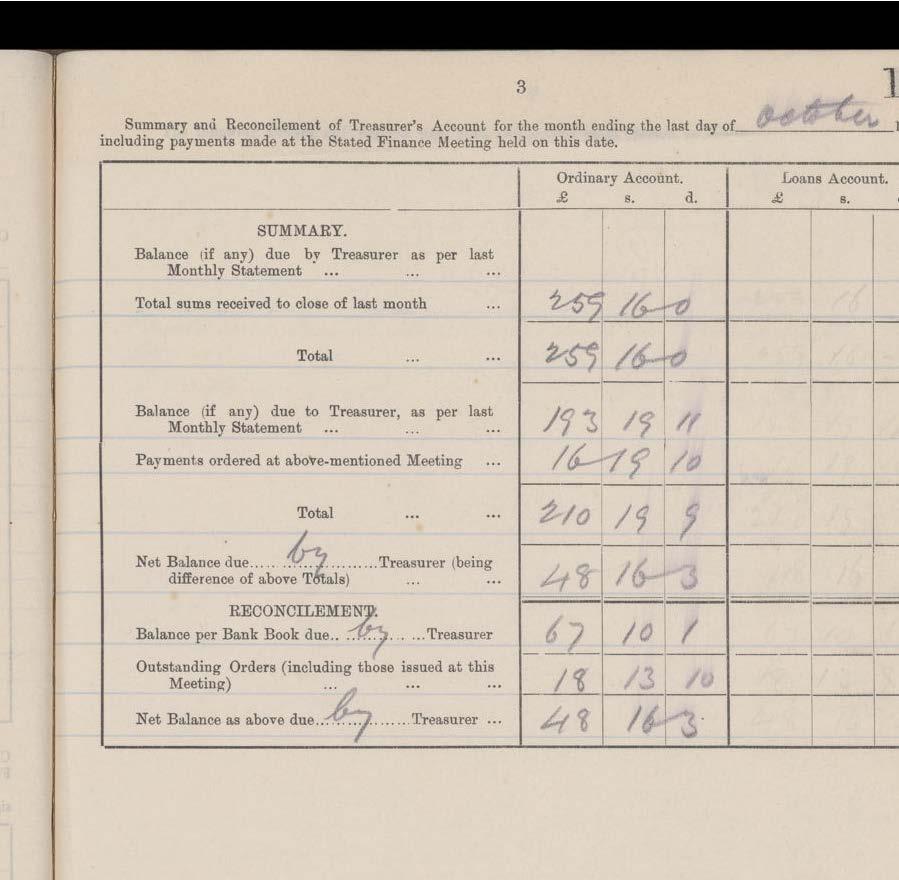 3
Summary and Reconcilement of Treasurer's Account for the month ending the last day of October
including payments made at the Stated Finance Meeting held on this date.
Ordinary Account. Loans Account.
£ s. d. £ s.
SUMMARY.
Balance (if any) due by Treasurer as per last
Monthly Statement ... ... ...
Total sums received to close of last month ... 259 16 0
Total ... ... 259 16 0
Balance (if any) due to Treasurer, as per last
Monthly Statement ... ... ... 193 19 11
Payments ordered at above-mentioned Meeting ... 16 19 10
Total ... ... 210 19 9
Net Balance due..... by ..........Treasurer (being
difference of above Totals) ... ... 48 16 3
RECONCILEMENT.
Balance per Bank Book due.. by ... ...Treasurer 67 10 1
Outstanding Orders (including those issued at this
Meeting) ... ... ... 18 13 10
Net Balance as above due... by .......Treasurer ... 48 16 3